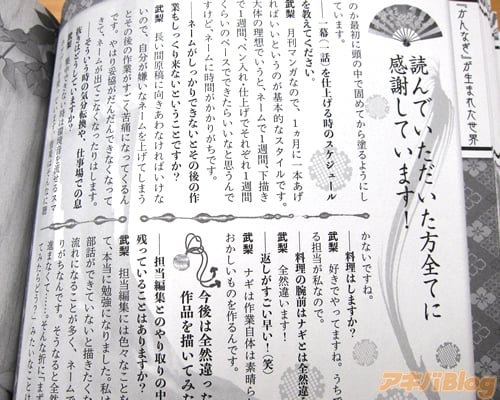 『かんなぎ』が生まれた世界
読んでいただいた方全てに
感謝しています！
のか最初に頭の中で固めてから塗るようにし
ています。
――一幕（一話）を仕上げる時のスケジュール
を教えてください。
武梨　月刊マンガなので、1ヵ月に一本あげ
ればいいというのが基本的なスタイルです。
大体の理想でいうと、ネームで1週間、下描き
で1週間、ペン入れ・仕上げでそれぞれ1週間
くらいのペースでできたらいいなと思うんで
すけど、ネームに時間がかかりがちです。
――ネームがしっかりできないとその後の作
業もしっくり来ないということですか？
武梨　長い間原稿に向きあわなければいけな
いので、自分が嫌いなネームを上げてしまう
とその後の作業がすごく苦痛になってくるん
です。やはり妥協がだんだんできなくなって
きて、ネームが早くできなくなったりはします。
かないですね。
――料理はしますか？
武梨　好きでやってますね。うちで
る担当が私なので。
――料理の腕前はナギとは全然違い
武梨　全然違います！
――返しがすごい早い！（笑）
武梨　ナギは作業自体は素晴ら
おかしいものを作るんです。
今後は全然違った
作品を描いてみた
――担当編集とのやり取りの中
残っていることはありますか？
武梨　担当編集には色々なことを
て、本当に勉強になりました。私は
部話ができていないと描きたくな
流れになることが多く、ネームで
りがちなんです。そうなると全然
進まなくて……。そんな折に、「まず
てみたらどう？」みたいなことは
アキバBlog